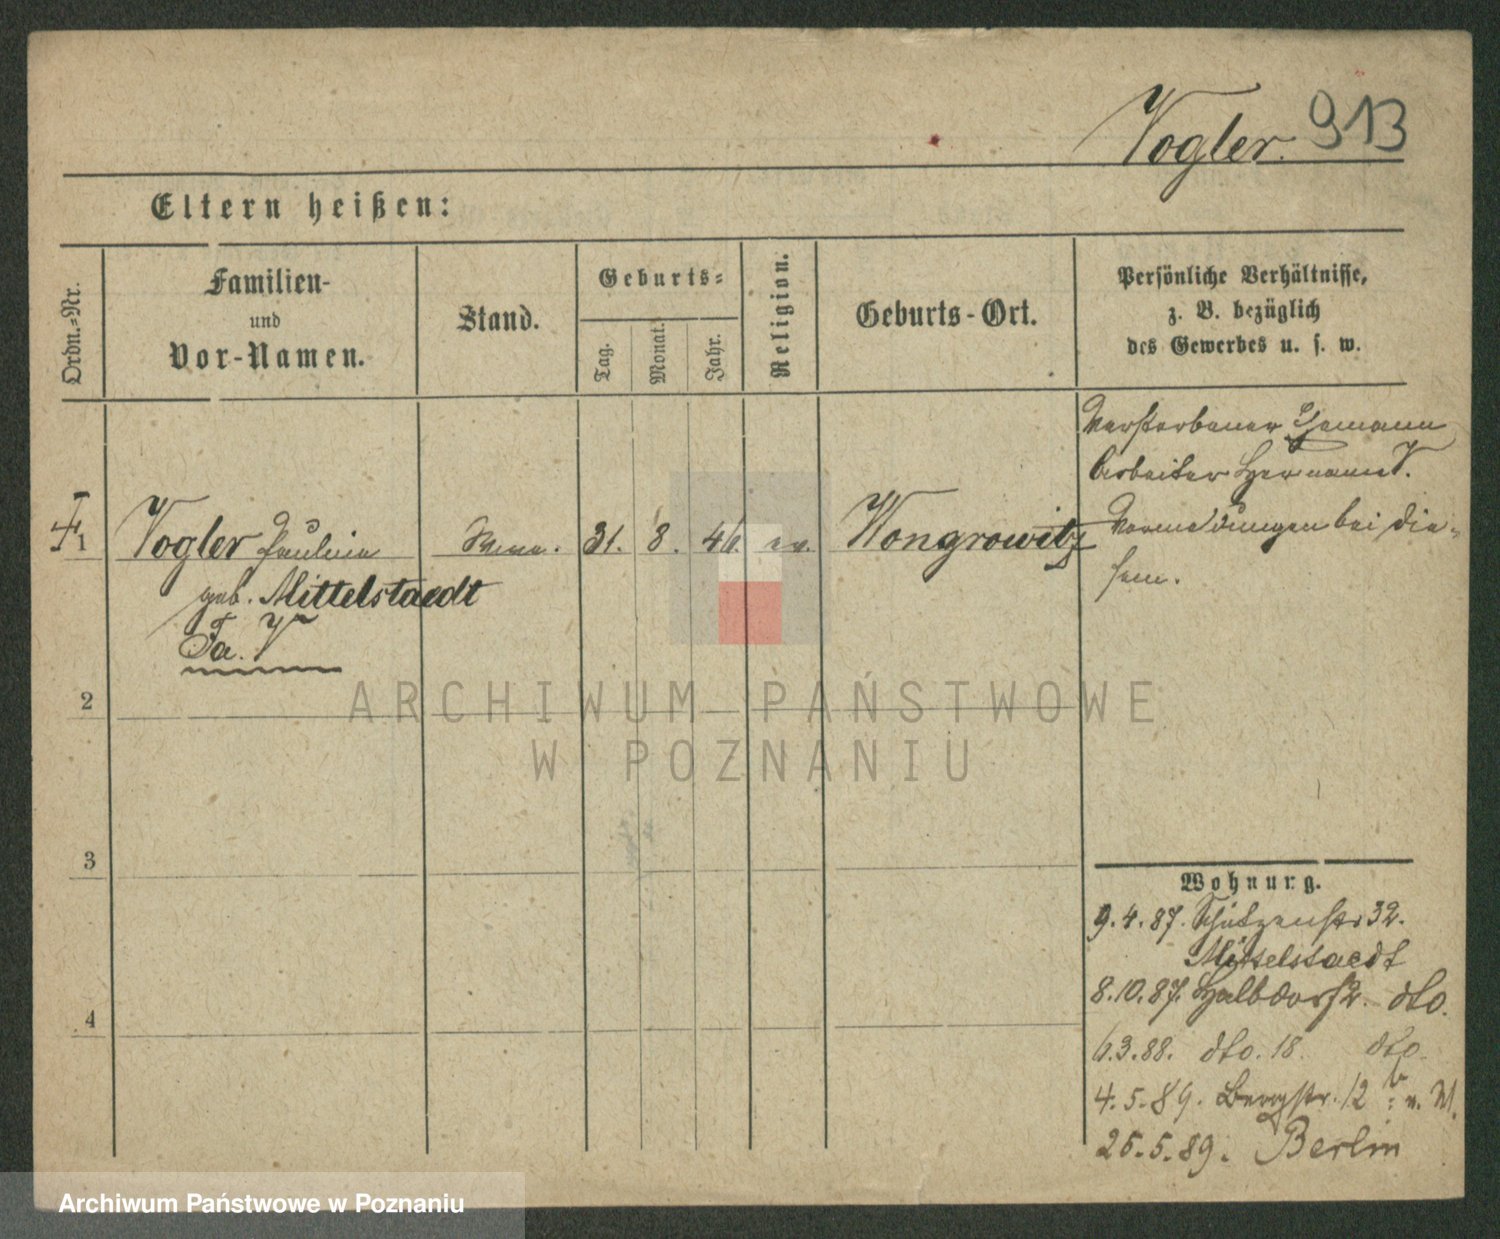 Vogler. 913
Eltern heißen:
Ordn.=Nr.
Familien-
und
Vor-Namen.
Stand.
Geburts=
Tag.
Monat.
Jahr.
Religion.
Geburts-Ort.
Persönliche Verhältnisse,
z. B. bezüglich
des Gewerbes u. s. w.
Verstorbener Ehemann
Arbeiter Hermann V.
1 Vogler Pauline Wwe. 31. 8. 46. ev. Wongrowitz
Vormeldungen bei die-
sem.
geb. Mittelstaedt
Fa. V
2
ARCHIWUM PAŃSTWOWE
W POZNANIU
3
4
Wohnung.
9.4.87. Schützenstr 32.
Mittelstaedt
8.10.87. Halbdorfstr. dto.
6.3.88. dto. 18. dto.
4.5.89. Bergstr. 12 b. v. M.
25.5.89. Berlin
Archiwum Państwowe w Poznaniu